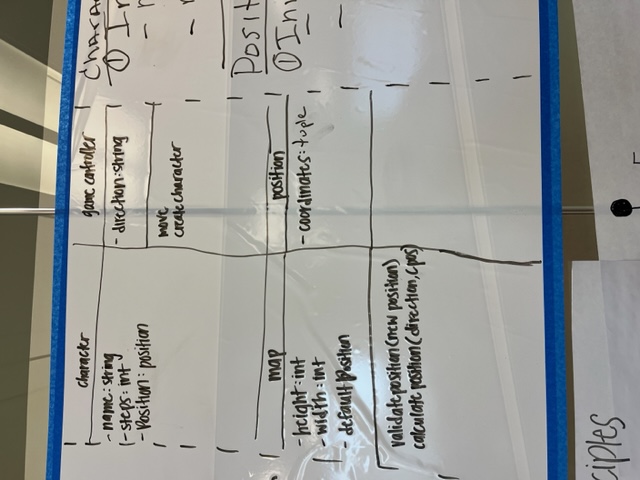 character
- name: string
- steps: int
- Position: position
game controller
- direction: string
move
create character
map
- height: int
- width: int
- default Position
validate position (new position)
calculate position (direction, cpos)
position
- coordinates: tuple
①
-
-
①
-
-
ciples